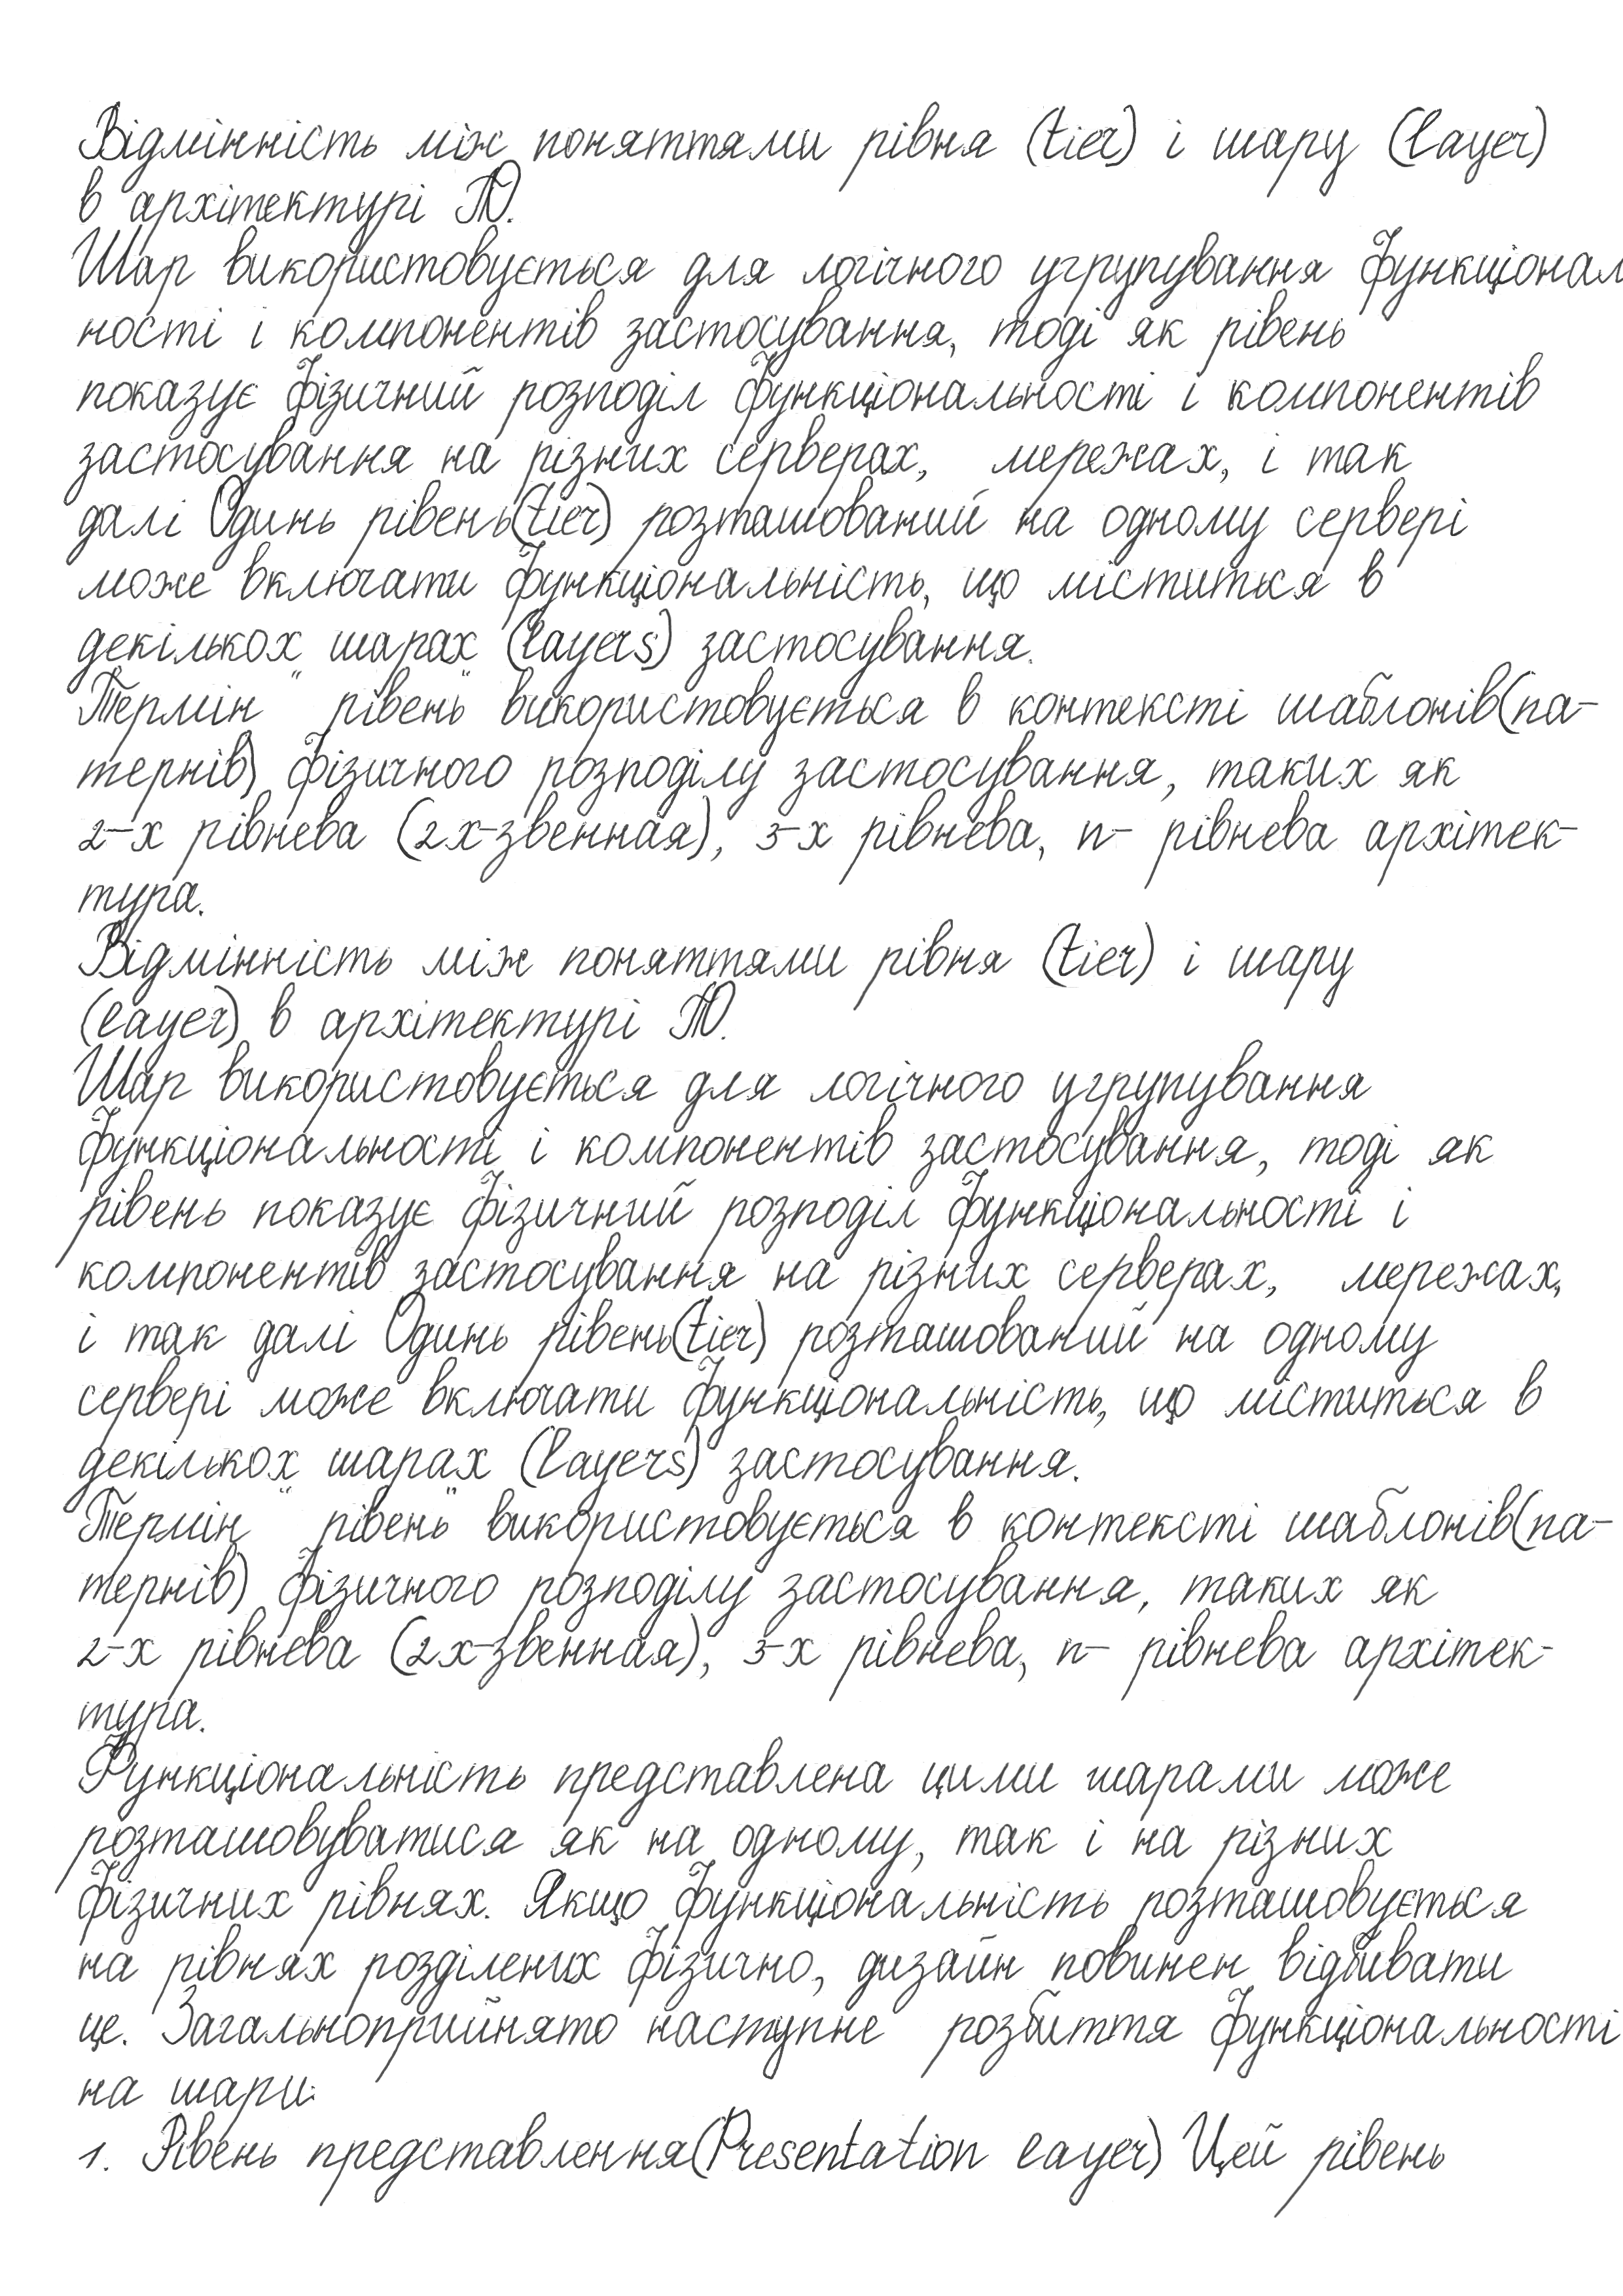 Відмінність між поняттями рівня (tier) і шару (layer)
в архітектурі ПО.
Шар використовується для логічного угрупування функціонал
ності і компонентів застосування, тоді як рівень
показує фізичний розподіл функціональності і компонентів
застосування на різних серверах, мережах, і так
далі Одинь рівень(tier) розташований на одному сервері
може включати функціональність, що міститься в
декількох шарах (layers) застосування.
Термін "рівень" використовується в контексті шаблонів(па-
тернів) фізичного розподілу застосування, таких як
2-х рівнева (2х-звенная), 3-х рівнева, n- рівнева архітек-
тура.
Відмінність між поняттями рівня (tier) і шару
(layer) в архітектурі ПО.
Шар використовується для логічного угрупування
функціональності і компонентів застосування, тоді як
рівень показує фізичний розподіл функціональності і
компонентів застосування на різних серверах, мережах,
і так далі Одинь рівень(tier) розташований на одному
сервері може включати функціональність, що міститься в
декількох шарах (layers) застосування.
Термін "рівень" використовується в контексті шаблонів(па-
тернів) фізичного розподілу застосування, таких як
2-х рівнева (2х-звенная), 3-х рівнева, n- рівнева архітек-
тура.
Функціональність представлена цими шарами може
розташовуватися як на одному, так і на різних
фізичних рівнях. Якщо функціональність розташовується
на рівнях розділених фізично, дизайн повинен відбивати
це. Загальноприйнято наступне розбиття функціональності
на шари:
1. Рівень представлення(Presentation layer) Цей рівень